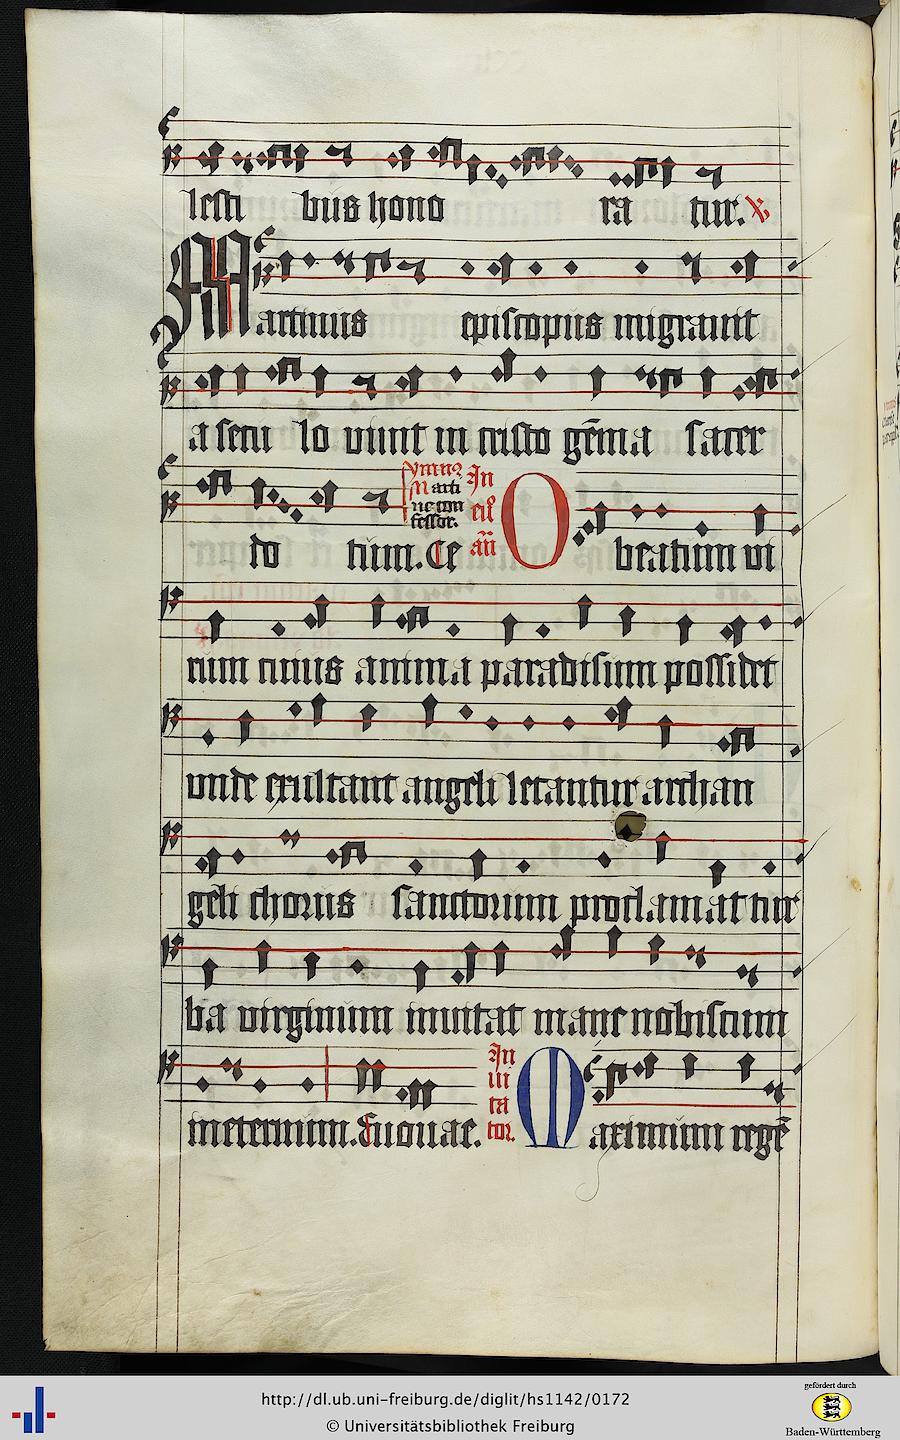 lesti bus hono ra tur. V
Martinus episcopus migrauit
a secu lo viuit in cristo gēma sacer
do tum. Ce
Ymnus
Marti
ne con
fessor.
In
eū
añ
O beatum vi
rum cuius anima paradisum possidet
vnde exultant angeli letantur archan
geli chorus sanctorum proclamat tur
ba virginum inuitat mane nobiscum
ineternum. Euouae.
In
ui
ta
tor.
Maximum regē
http://dl.ub.uni-freiburg.de/diglit/hs1142/0172
© Universitätsbibliothek Freiburg
gefördert durch
Baden-Württemberg